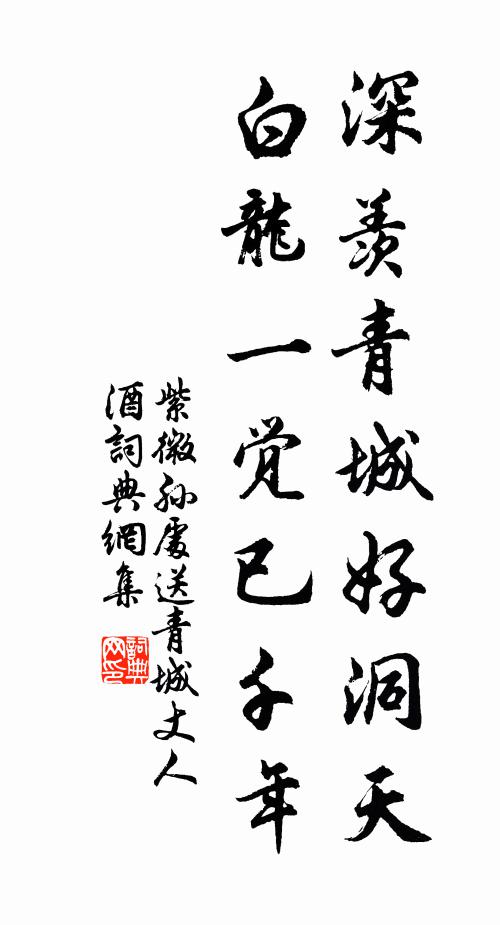 深羨青城好洞天
白龍一觉已千年
紫微孙處送青城丈人
酒詞典網集
詞典
网印